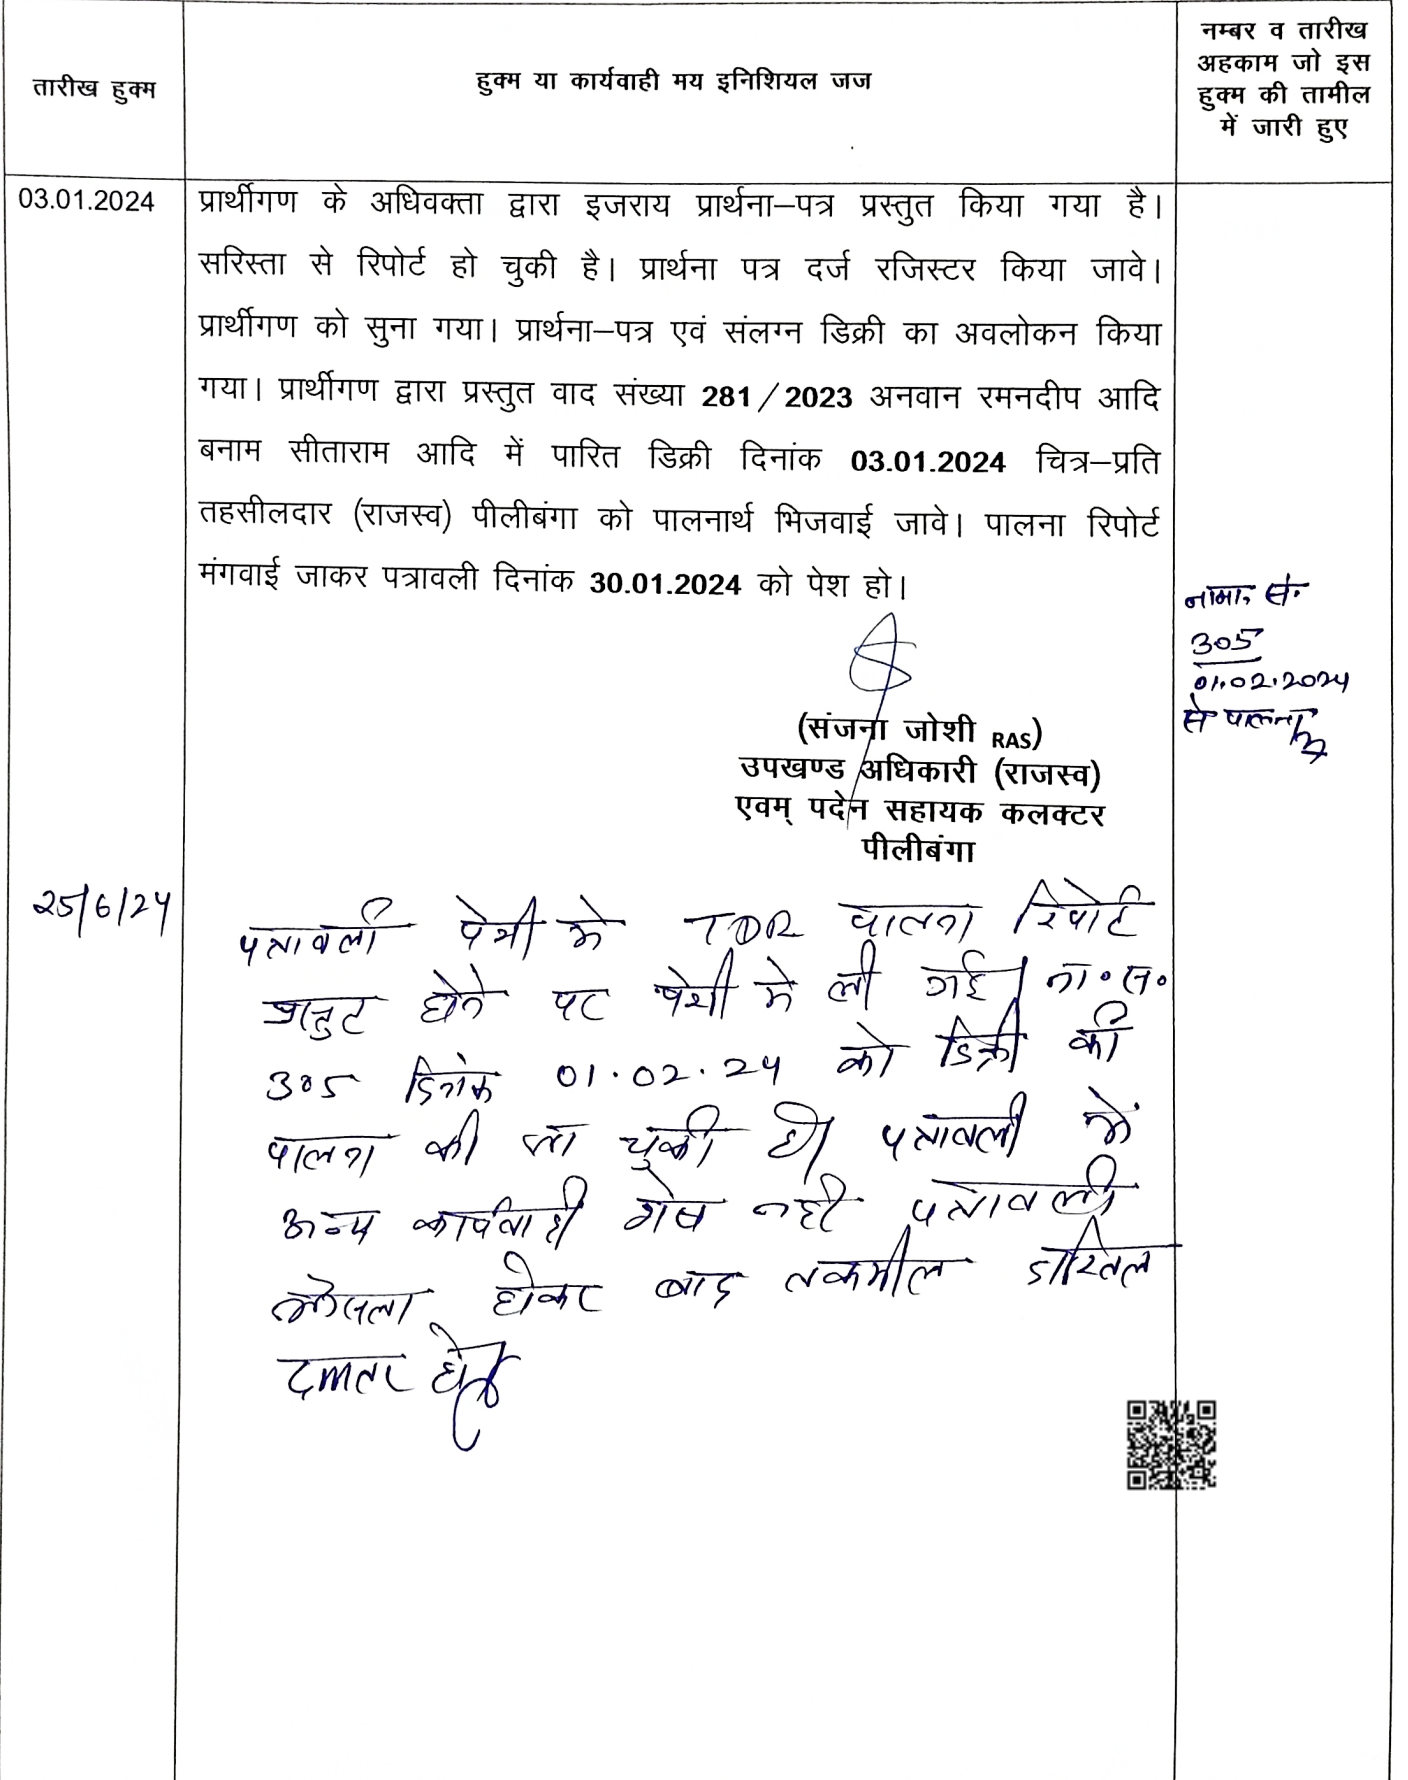 तारीख हुक्म
हुक्म या कार्यवाही मय इनिशियल जज
नम्बर व तारीख
अहकाम जो इस
हुक्म की तामील
में जारी हुए
03.01.2024
प्रार्थीगण के अधिवक्ता द्वारा इजराय प्रार्थना–पत्र प्रस्तुत किया गया है।
सरिस्ता से रिपोर्ट हो चुकी है। प्रार्थना पत्र दर्ज रजिस्टर किया जावे।
प्रार्थीगण को सुना गया। प्रार्थना–पत्र एवं संलग्न डिक्री का अवलोकन किया
गया। प्रार्थीगण द्वारा प्रस्तुत वाद संख्या 281/2023 अनवान रमनदीप आदि
बनाम सीताराम आदि में पारित डिक्री दिनांक 03.01.2024 चित्र–प्रति
तहसीलदार (राजस्व) पीलीबंगा को पालनार्थ भिजवाई जावे। पालना रिपोर्ट
मंगवाई जाकर पत्रावली दिनांक 30.01.2024 को पेश हो।
(संजना जोशी RAS)
उपखण्ड अधिकारी (राजस्व)
एवम् पदेन सहायक कलक्टर
पीलीबंगा
नामा. सं.
305
01.02.2024
से पालना
25/6/24
पत्रावली पेशी मे TDR पालना रिपोर्ट
प्राप्त होने पर पेशी मे ली गई। ना॰ स॰
305 दिनांक 01.02.24 को डिक्री की
पालना की जा चुकी है। पत्रावली में
अन्य कार्यवाही शेष नही पत्रावली
फैसला होकर बाद तकमील दाखिल
दफ्तर हो